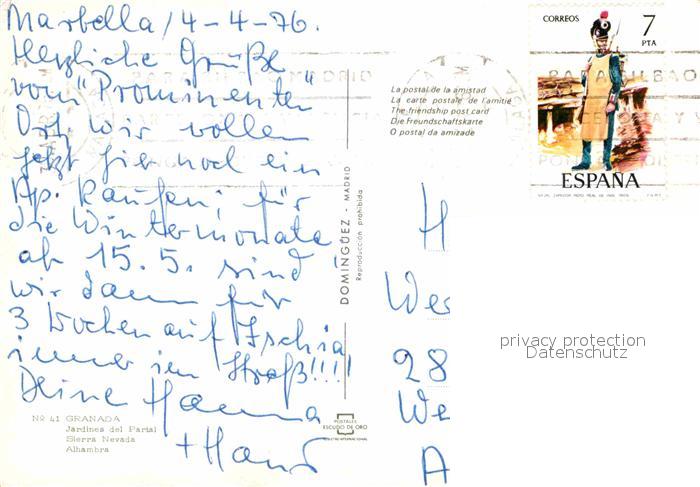 Marbella / 4-4-76.
Herzliche Grüße
vom "Prominenten"
Ort. Wir wollen
jetzt hier noch ein
Ap. kaufen, für
die Wintermonate
ab 15.5. sind
wir dann für
3 Wochen auf Ischia
immer im Streß!!!!
Deine Hanna
+ Hans
Nº 41 GRANADA
Jardines del Partal
Sierra Nevada
Alhambra
DOMINGUEZ - MADRID
Reproducción prohibida
POSTALES
ESCUDO DE ORO
La postal de la amistad
La carte postale de l'amitié
The friendship post card
Die Freundschaftskarte
O postal da amizade
CORREOS 7
PTA
ESPAÑA
H
Wes
28
We
A
privacy protection
Datenschutz